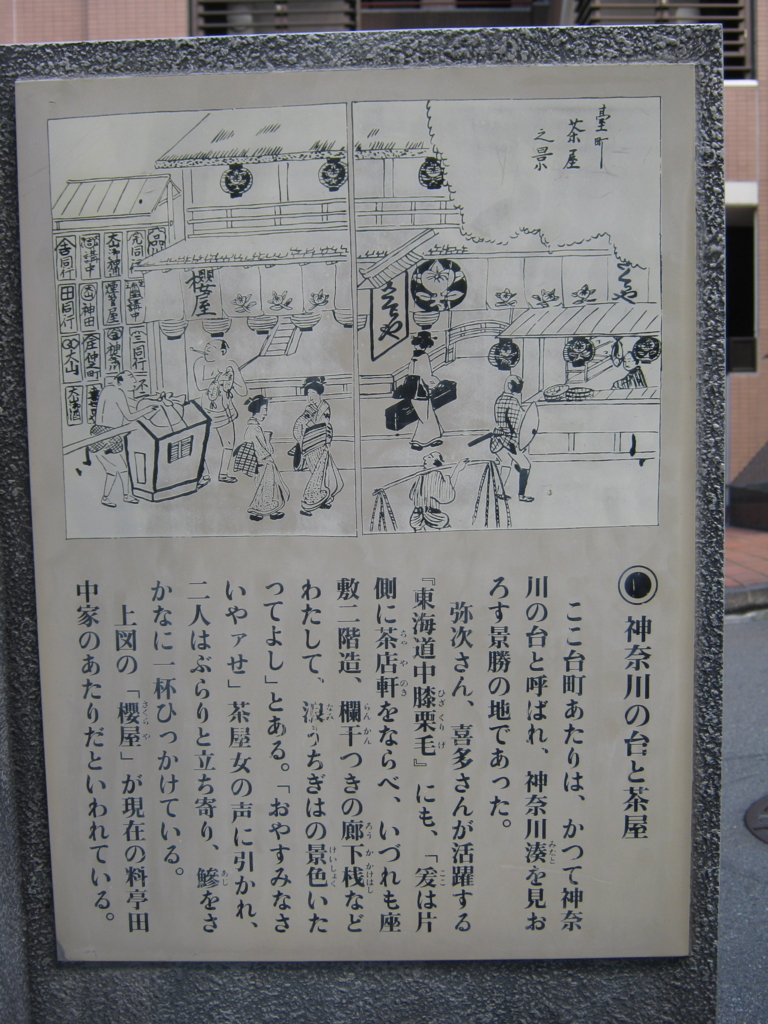 臺町
茶屋
之景
さくらや
櫻屋
◉神奈川の台と茶屋
ここ台町あたりは、かつて神奈
川の台と呼ばれ、神奈川湊を見お
ろす景勝の地であった。
弥次さん、喜多さんが活躍する
『東海道中膝栗毛』にも、「爰は片
側に茶店軒をならべ、いづれも座
敷二階造、欄干つきの廊下桟など
わたして、浪うちぎはの景色いた
ってよし」とある。「おやすみなさ
いやァせ」茶屋女の声に引かれ、
二人はぶらりと立ち寄り、鯵をさ
かなに一杯ひっかけている。
上図の「櫻屋」が現在の料亭田
中家のあたりだといわれている。